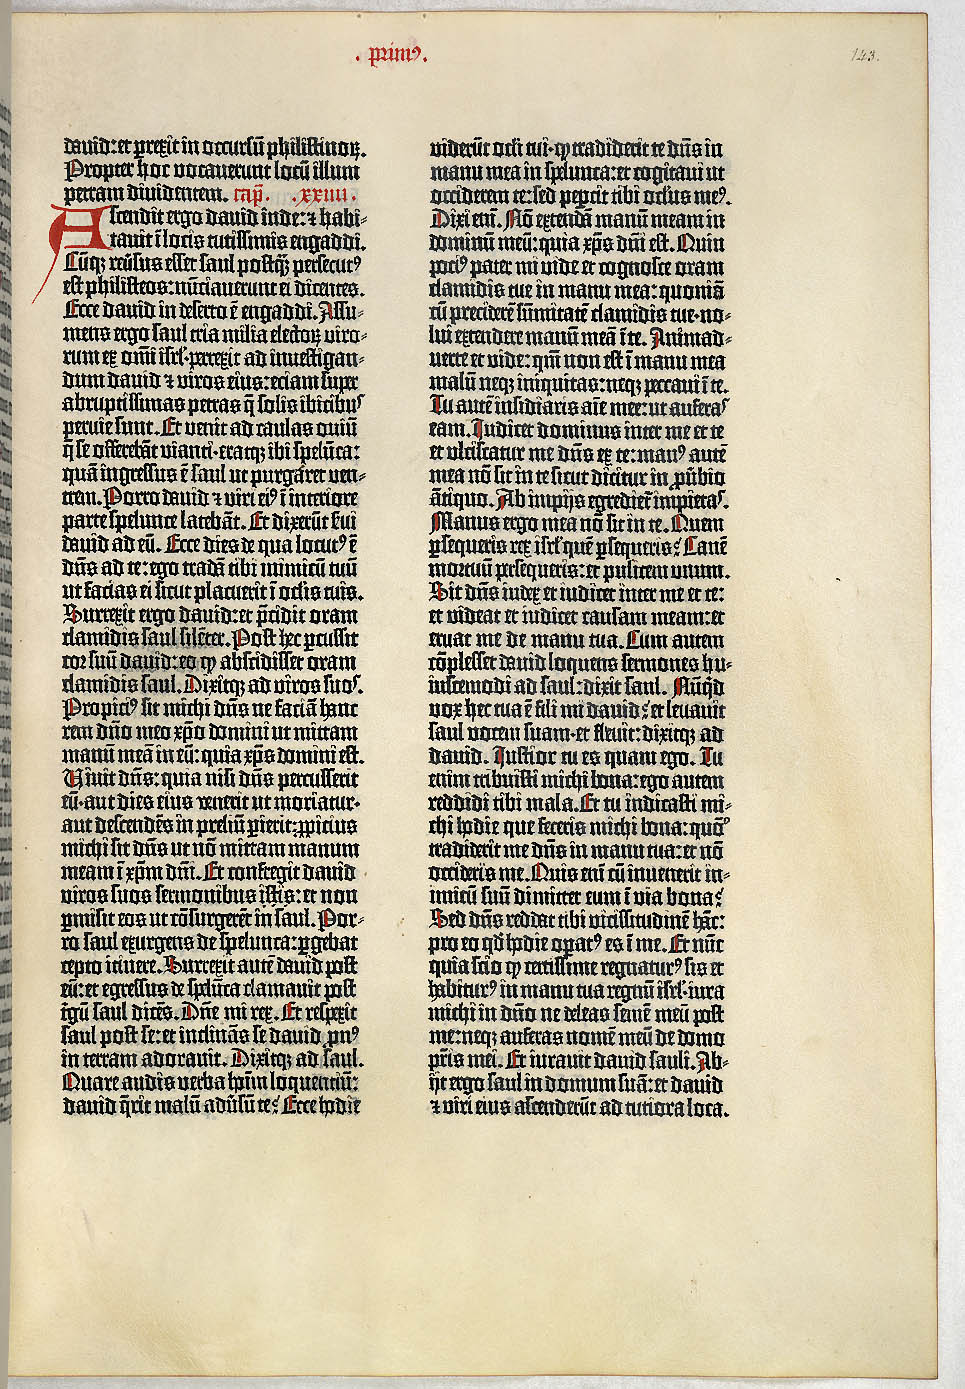 . primꝰ.
143.
dauid:et ꝑrexit in occursū philistinoꝝ.
Propter hoc vocauerunt locū illum
petram diuidentem. cap̄. .xxiiii.
Ascendit ergo dauid inde:⁊ habi-
tauit ī locis tutissimis engaddi.
Cūqꝫ reūsus esset saul postqꝫ̄ persecutꝰ
est philisteos:nūciauerunt ei dicentes.
Ecce dauid in deserto ē engaddi. Assu-
mens ergo saul tria milia electoꝝ viro-
rum ex om̄i isrl̓·perrexit ad inuestigan-
dum dauid ⁊ viros eius:eciam super
abruptissimas petras q̄ solis ibicibuˢ
peruie sunt. Et venit ad caulas ouiū
q̄ se offerebāt vianti·eratqꝫ ibi spelūca:
quā ingressus ē saul ut purgaret ven-
trem. Porro dauid ⁊ viri eiꝰ ī interiore
parte spelunce latebāt. Et dixerūt s̄ui
dauid ad eū. Ecce dies de qua locutꝰ ē
dn̄s ad te:ego tradā tibi inimicū tuū
ut facias ei sicut placuerit ī oclis tuis.
Surrexit ergo dauid:et p̄cidit oram
clamidis saul silēter. Post hec ꝑcussit
cor suū dauid:eo ꝙ abscidisset oram
clamidis saul. Dixitqꝫ ad viros suoˢ.
Propiciꝰ sit michi dn̄s ne faciā hanc
rem dn̄o meo xp̄o domini ut mittam
manū meā in eū: quia xp̄s domini est.
Uiuit dn̄s: quia nisi dn̄s percusserit
eū·aut dies eius venerit ut moriatur·
aut descendēs in preliū ꝑierit:ꝓpicius
michi sit dn̄s ut nō mittam manum
meam ī xp̄m dn̄i. Et confregit dauid
viros suos sermonibus istis: et non
ꝑmisit eos ut cōsurgerēt in saul. Por-
ro saul exurgens de spelunca:ꝑgebat
cepto itinere. Surrexit autē dauid post
eū:et egressus de spelūca clamauit post
tgū saul dicēs. Dn̄e mi rex. Et respexit
saul post se:et inclinās se dauid ꝓnꝰ
in terram adorauit. Dixitqꝫ ad saul.
Quare audis verba hoīm loquentiū:
dauid q̄rit malū adūsū te? Ecce hodie
viderūt ocli tui·ꝙ tradiderit te dn̄s in
manu mea in spelunca:et cogitaui ut
occiderem te:sed peꝑcit tibi oclus meꝰ.
Dixi em̄. Nō extendā manū meam in
dominū meū:quia xp̄s dn̄i est. Quin
pociꝰ pater mi vide et cognosce oram
clamidis tue in manu mea:quoniā
cū preciderē sūmitatē clamidis tue·no-
lui extendere manū meā ī te. Animad-
uerte et vide: qm̄ non est ī manu mea
malū neqꝫ iniquitas:neqꝫ peccaui ī te.
Tu autē insidiaris aīe mee:ut auferaˢ
eam. Iudicet dominus inter me et te
et vlciscatur me dn̄s ex te:manꝰ autē
mea nō sit in te sicut dicitur in ꝓūbio
ātiquo. Ab impijs egrediet̄ impietaˢ.
Manus ergo mea nō sit in te. Quem
ꝑsequeris rex isrl̓ quē ꝑsequeris? Canē
mortuū persequeris:et pulicem vnum.
Sit dn̄s iudex et iudicet inter me et te:
et videat et iudicet causam meam:et
eruat me de manu tua. Cum autem
cōplesset dauid loquens sermones hu-
iuscemodi ad saul:dixit saul. Nūqͥd
vox hec tua ē fili mi dauid? et leuauit
saul vocem suam·et fleuit:dixitqꝫ ad
dauid. Iustior tu es quam ego. Tu
enim tribuisti michi bona:ego autem
reddidi tibi mala. Et tu indicasti mi-
chi hodie que feceris michi bona:quoˀ
tradiderit me dn̄s in manu tua:et nō
occideris me. Quis em̄ cū inuenerit in-
imicū suū dimittet eum ī via bona?
Sed dn̄s reddat tibi vicissitudinē hāc:
pro eo qd̓ hodie oꝑatꝰ es ī me. Et nūc
quia scio ꝙ certissime regnaturꝰ sis et
habiturꝰ in manu tua regnū isrl̓·iura
michi in dn̄o ne deleas semē meū post
me:neqꝫ auferas nomē meū de domo
p̄ris mei. Et iurauit dauid sauli. Ab-
ijt ergo saul in domum suā:et dauid
⁊ viri eius ascenderūt ad tutiora loca.